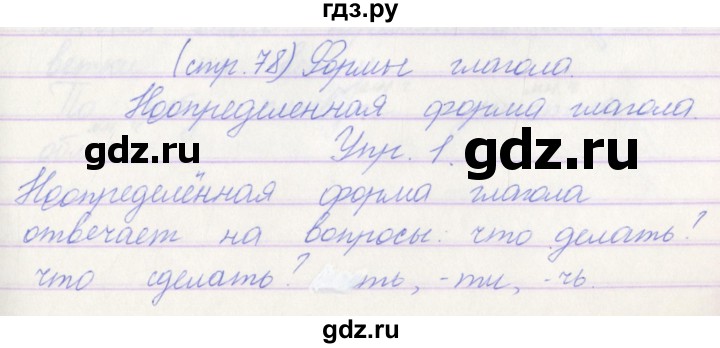 гдз.ру
(стр. 78) Формы глагола.
Неопределенная форма глагола.
gdz.ru gdz.ru
Упр. 1.
Неопределённая форма глагола
отвечает на вопросы: что делать?
что сделать? ть, -ти, -чь.
gdz.ru